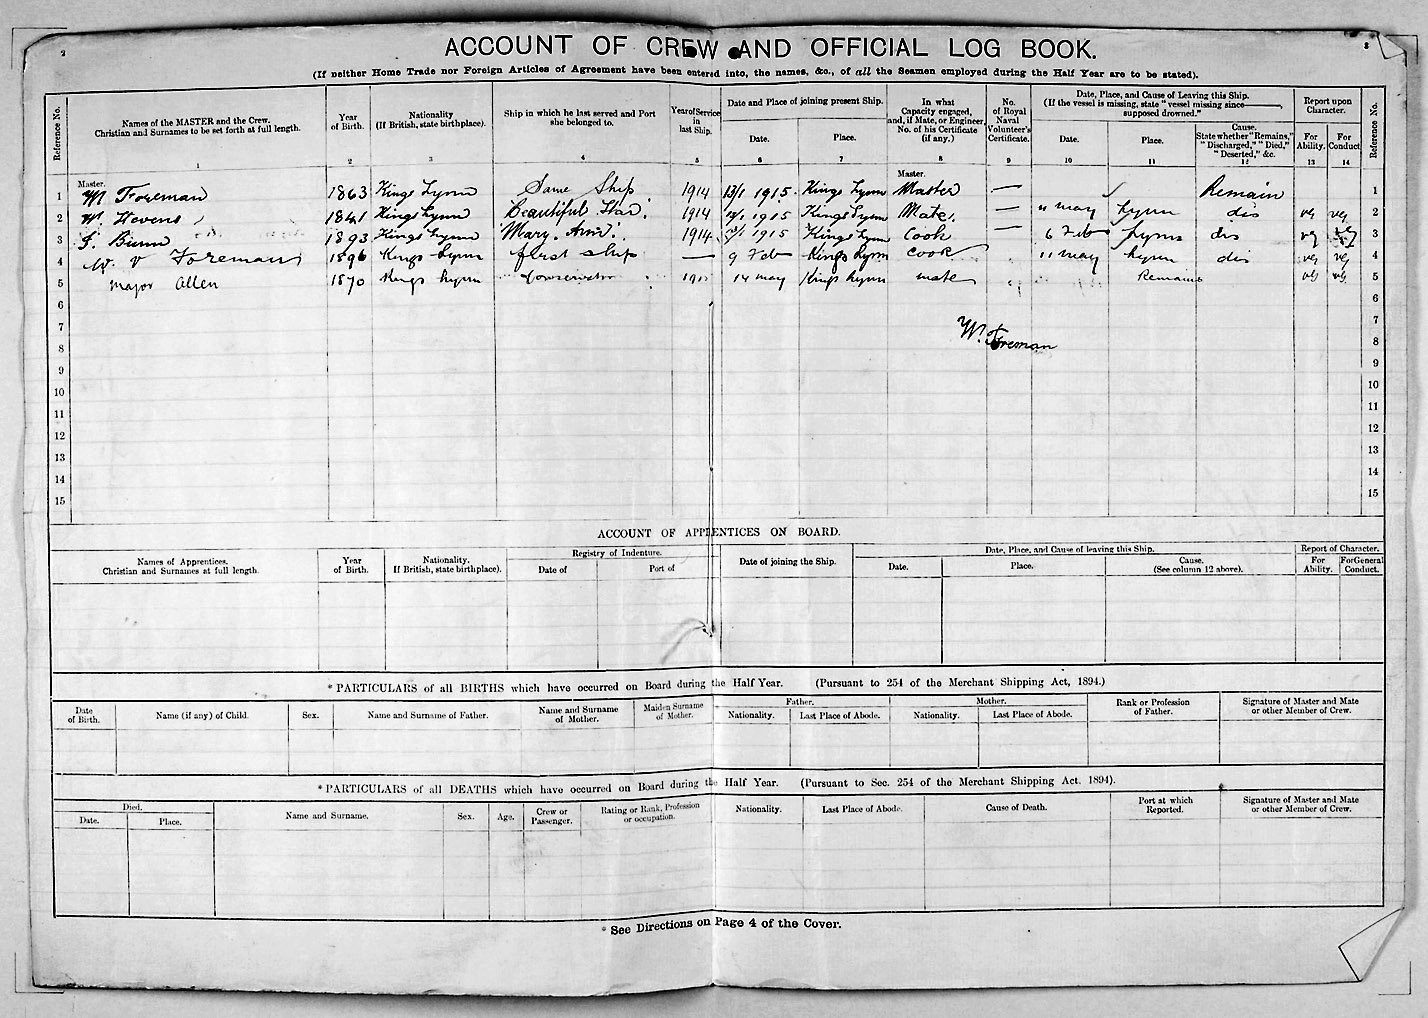 2
ACCOUNT OF CREW AND OFFICIAL LOG BOOK.
3
(If neither Home Trade nor Foreign Articles of Agreement have been entered into, the names, &c., of all the Seamen employed during the Half Year are to be stated).
Reference No.
Names of the MASTER and the Crew.
Christian and Surnames to be set forth at full length.
1
Year
of Birth.
2
Nationality
(If British, state birthplace).
3
Ship in which he last served and Port
she belonged to.
4
Year of Service
in
last Ship.
5
Date and Place of joining present Ship.
Date.
6
Place.
7
In what
Capacity engaged,
and, if Mate, or Engineer,
No. of his Certificate
(if any.)
8
No.
of Royal
Naval
Volunteer's
Certificate.
9
Date, Place, and Cause of Leaving this Ship.
(If the vessel is missing, state "vessel missing since
supposed drowned."
Date.
10
Place.
11
Cause.
State whether "Remains,"
"Discharged," "Died,"
"Deserted," &c.
12
Report upon
Character.
For
Ability.
13
For
Conduct
14
Reference No.
Master.
Master.
1 W Foreman 1863 Kings Lynn Same Ship 1914 13/1 1915. Kings Lynn Master — Remain 1
2 W. 1841 Kings Lynn Beautiful Star 1914 1915 Kings Lynn Mate. — 11 May Lynn dis vg vg 2
3 Bunn 1893 Kings Lynn Mary Ann 1914 1915 Kings Lynn Cook — 6 Feb Lynn dis vg 3
4 W. V Foreman 1896 Kings Lynn first ship — 9 Feb Kings Lynn Cook 11 May Lynn dis vg vg 4
5 Major Allen 1870 Kings Lynn Conservator 14 May Kings Lynn mate Remains vg vg 5
6 6
7 7
W. Foreman
8 8
9 9
10 10
11 11
12 12
13 13
14 14
15 15
ACCOUNT OF APPRENTICES ON BOARD.
Names of Apprentices.
Christian and Surnames at full length.
Year
of Birth.
Nationality.
If British, state birthplace).
Registry of Indenture.
Date of
Port of
Date of joining the Ship.
Date, Place, and Cause of leaving this Ship.
Date.
Place.
Cause.
(See column 12 above).
Report of Character.
For
Ability.
For General
Conduct.
* PARTICULARS of all BIRTHS which have occurred on Board during the Half Year. (Pursuant to 254 of the Merchant Shipping Act, 1894.)
Date
of Birth.
Name (if any) of Child.
Sex.
Name and Surname of Father.
Name and Surname
of Mother.
Maiden Surname
of Mother.
Father.
Nationality.
Last Place of Abode.
Mother.
Nationality.
Last Place of Abode.
Rank or Profession
of Father.
Signature of Master and Mate
or other Member of Crew.
* PARTICULARS of all DEATHS which have occurred on Board during the Half Year. (Pursuant to Sec. 254 of the Merchant Shipping Act. 1894).
Died.
Date.
Place.
Name and Surname.
Sex.
Age.
Crew or
Passenger.
Rating or Rank, Profession
or occupation.
Nationality.
Last Place of Abode.
Cause of Death.
Port at which
Reported.
Signature of Master and Mate
or other Member of Crew.
* See Directions on Page 4 of the Cover.